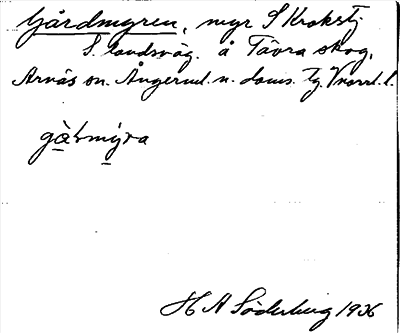 Gårdmyren, myr S Krokstj.
S. landsväg. å Tävra skog,
Arnäs sn. Ångerml. n. doms. tg. Vnorrl. l.
gàḷmýra
H A Söderberg 1936